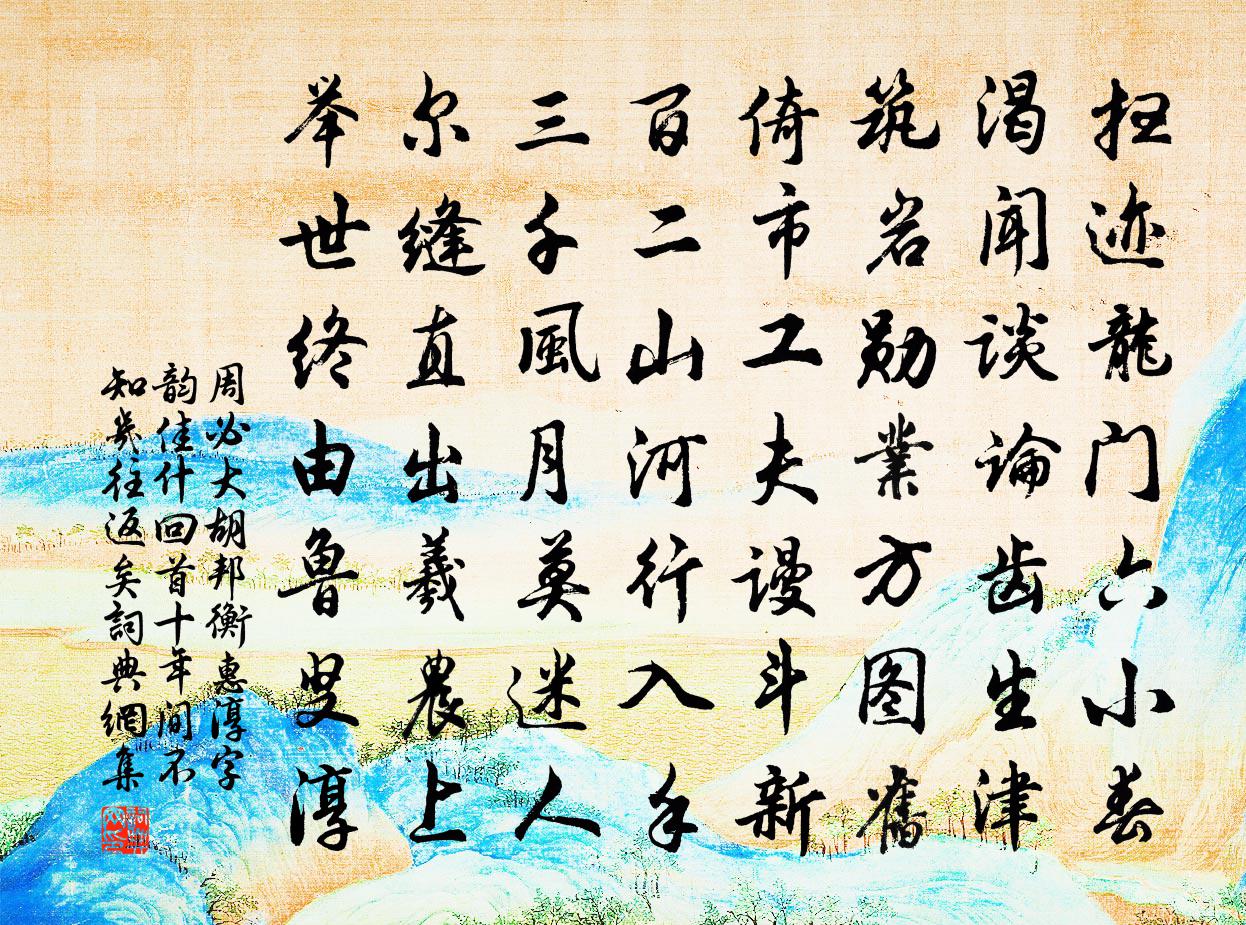 抂迹龍门六小春
渴闻谈论齿生津
筑岩勋業方图舊
倚市工夫谩斗新
百二山河行入手
三千風月莫迷人
尔缝直出羲農上
举世终由鲁叟淳
周必大胡邦衡惠淳字
韵佳什回首十年间不
知幾往返矣詞典網集